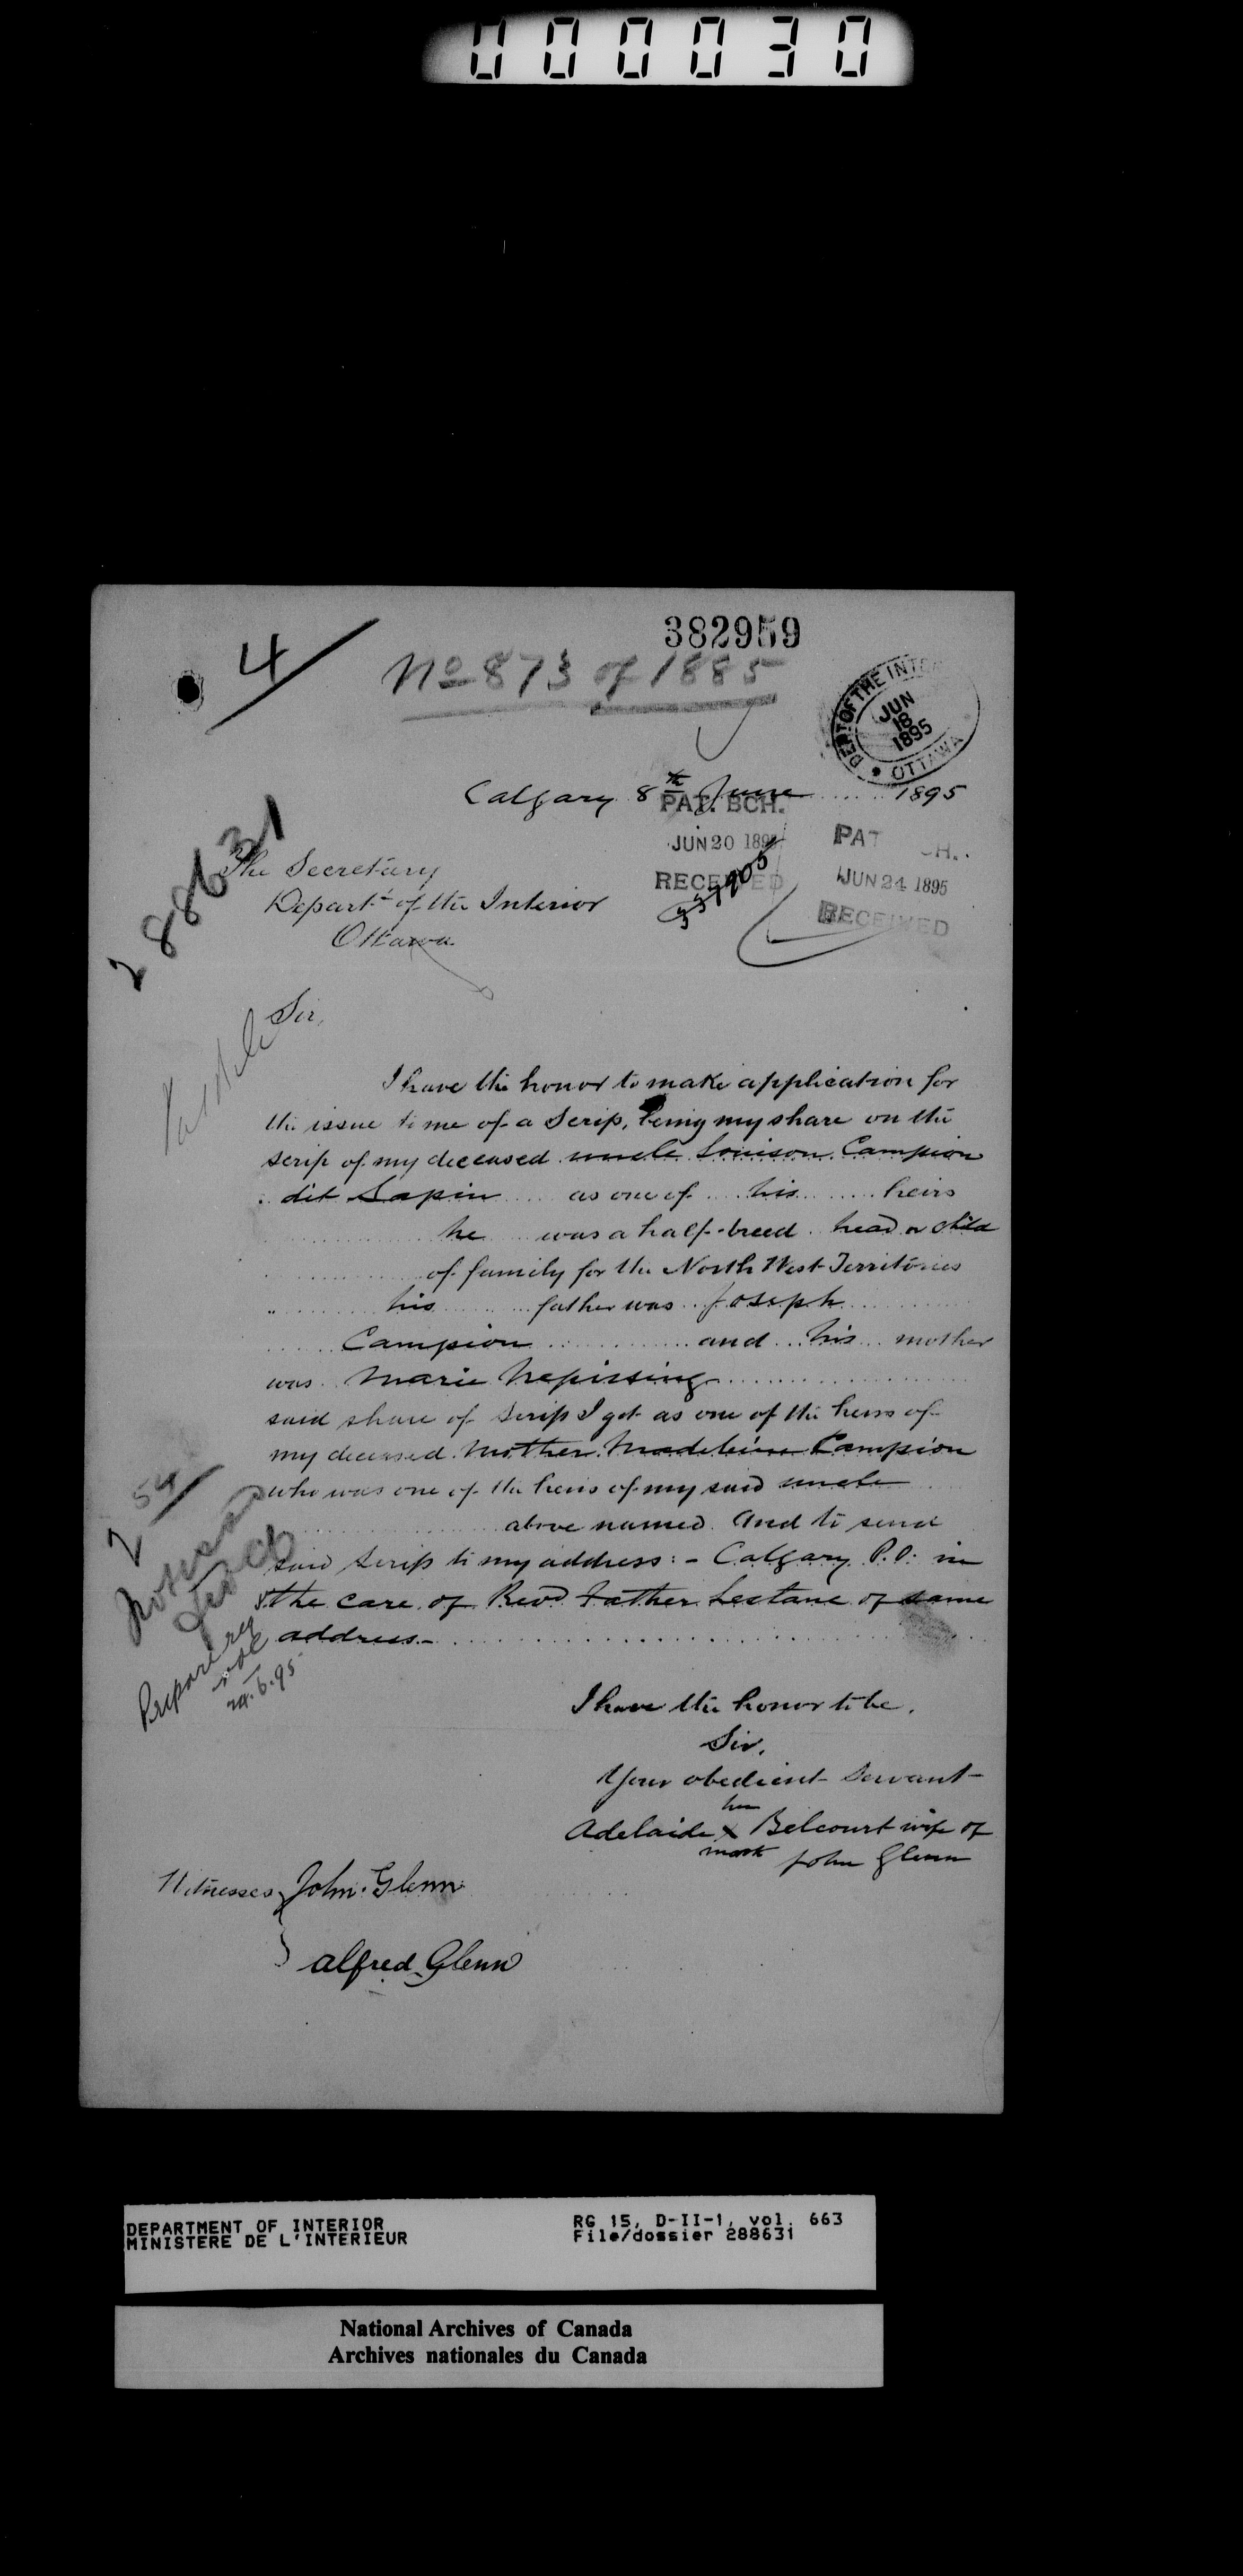 000030
382959
4
No 873 of 1885
DEPT OF THE INTER
JUN
18
1895
OTTAWA
Calgary 8th June 1895
PAT. BCH.
JUN 20 1895
RECEIVED
PAT H.
JUN 24 1895
RECEIVED
288631
The Secretary
Depart't of the Interior
Ottawa
Sir,
I have the honor to make application for
the issue to me of a Scrip, being my share on the
scrip of my deceased uncle Louison Campion
dit Lapin as one of his heirs
he was a half-breed head or child
of family for the North West Territories
his father was Joseph
Campion and his mother
was Marie Nepissing
said share of scrip I get as one of the heirs of
my deceased Mother Madeleine Campion
who was one of the heirs of my said uncle
above named. And to send
said scrip to my address: - Calgary P.O. in
the care of Revd Father Lestanc of same
address.-
2 54
Prepare
24.6.95
I have the honor to be,
Sir,
Your obedient Servant
her
Adelaide x Belcourt wife of
mark John Glenn
Witnesses John Glenn
Alfred Glenn
DEPARTMENT OF INTERIOR
MINISTERE DE L'INTERIEUR
RG 15, D-II-1, vol. 663
File/dossier 288631
National Archives of Canada
Archives nationales du Canada